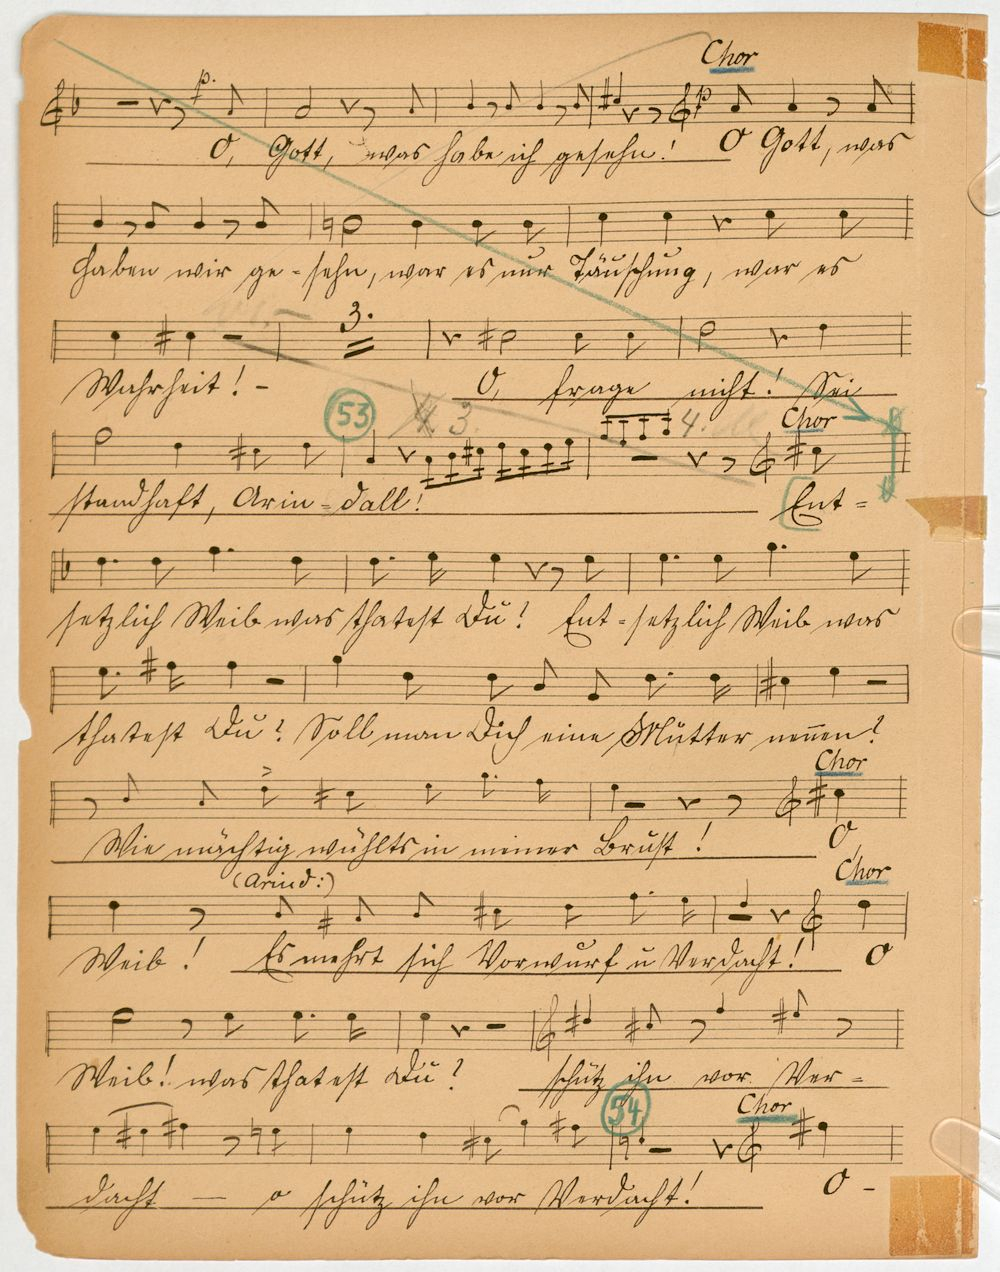 Chor
p.
O, Gott, was habe ich gesehn! O Gott, was
haben wir ge-sehn, war es nur Täuschung, war es
3.
Wahrheit! - O, frage nicht! Sei
53 4. 3. 4. Chor
standhaft, Arin-dall! Ent-
setzlich Weib was thatest Du? Ent-setzlich Weib was
thatest Du? Soll man Dich eine Mutter nennen?
Chor
Wie mächtig wühlts in meiner Brust! O,
(Arind:) Chor
Weib! Es mehrt sich Vorwurf u Verdacht! O
Weib! was thatest Du? schütz ihn vor Ver-
54 Chor
dacht — o schütz ihn vor Verdacht! O -